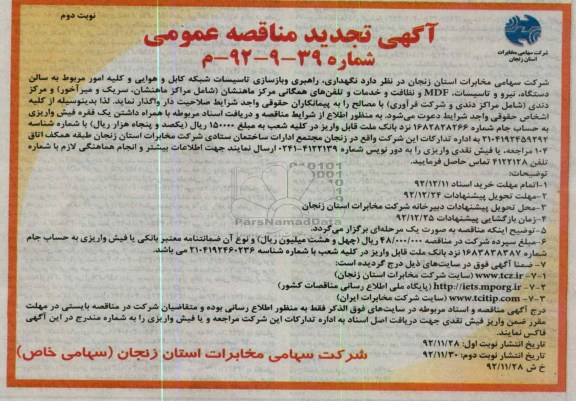 نوبت دوم
آگهی تجدید مناقصه عمومی
شماره ۳۹-۹-۹۲-م
شرکت سهامی مخابرات
استان زنجان
شرکت سهامی مخابرات استان زنجان در نظر دارد نگهداری، راهبری وبازسازی تاسیسات شبکه کابل و هوایی و کلیه امور مربوط به سالن
دستگاه، نیرو و تاسیسات، MDF و نظافت و خدمات و تلفن‌های همگانی مرکز ماهنشان (شامل مراکز ماهنشان، سریک و میرآخور) و مرکز
دندی (شامل مراکز دندی و شرکت فرآوری) با مصالح را به پیمانکاران حقوقی واجد شرایط صلاحیت دار واگذار نماید. لذا بدینوسیله از کلیه
اشخاص حقوقی واجد شرایط دعوت می‌شود، به منظور اطلاع از شرایط مناقصه و دریافت اسناد مربوطه با همراه داشتن یک فقره فیش واریزی
به حساب جام شماره ۱۶۸۳۸۳۸۲۶۶ نزد بانک ملت قابل واریز در کلیه شعب به مبلغ ۱۵۰۰۰۰ ریال (یکصد و پنجاه هزار ریال) با شماره شناسه
۲۱۰۴۱۹۲۴۵۹۲۹۲ به اداره تدارکات این شرکت واقع در زنجان مجتمع ادارات ساختمان ستادی شرکت مخابرات استان زنجان طبقه همکف اتاق
۱۰۲ مراجعه، یا فیش نقدی واریزی را به دور نویس شماره ۴۱۲۲۱۳۹-۰۲۴۱ ارسال نمایند جهت اطلاعات بیشتر و انجام هماهنگی لازم با شماره
تلفن ۴۱۲۲۱۲۸ تماس حاصل فرمایید.
توضیحات:
۱-اتمام مهلت خرید اسناد ۹۲/۱۲/۱۱
۲-مهلت تحویل پیشنهادات ۹۲/۱۲/۲۴
۳-محل تحویل پیشنهادات دبیرخانه شرکت مخابرات استان زنجان
۴-زمان بازگشایی پیشنهادات ۹۲/۱۲/۲۵
۵-توضیح اینکه مناقصه به صورت یک مرحله‌ای برگزار می‌گردد.
۶-مبلغ سپرده شرکت در مناقصه ۴۸/۰۰۰/۰۰۰ ریال (چهل و هشت میلیون ریال) و نوع آن ضمانتنامه معتبر بانکی یا فیش واریزی به حساب جام
شماره ۱۶۸۳۸۳۸۳۸۷ نزد بانک ملت قابل واریز در کلیه شعب با شماره شناسه ۲۱۰۴۱۹۲۴۶۰۲۳۶ می باشد.
۷- ضمنا آگهی فوق در سایت‌های ذیل درج گردیده است:
۷-۱- www.tcz.ir (سایت شرکت مخابرات استان زنجان)
۷-۲- http://iets.mporg.ir (پایگاه ملی اطلاع رسانی مناقصات کشور)
۷-۳- www.tcitip.com (سایت شرکت مخابرات ایران)
درج آگهی مناقصه و اسناد مربوطه در سایت‌های فوق الذکر فقط به منظور اطلاع رسانی بوده و متقاضیان شرکت در مناقصه بایستی در مهلت
مقرر ضمن واریز فیش نقدی جهت دریافت اصل اسناد به اداره تدارکات این شرکت مراجعه و یا فیش واریزی را به شماره مندرج در این آگهی
فاکس نمایند.
تاریخ انتشار نوبت اول: ۹۲/۱۱/۲۸
تاریخ انتشار نوبت دوم: ۹۲/۱۱/۳۰
خ ش ۹۲/۱۱/۲۸
شرکت سهامی مخابرات استان زنجان (سهامی خاص)
ParsNamadData